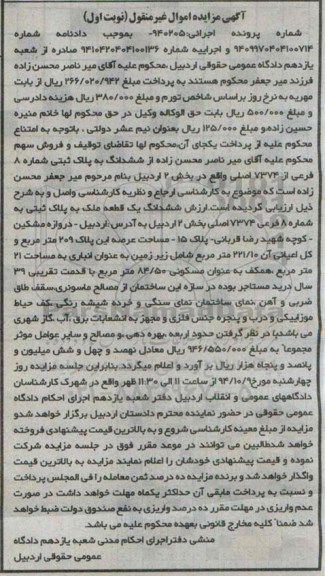 آگهی مزایده اموال غیرمنقول (نوبت اول)
شماره پرونده اجرائی:۹۴۰۲۰۵- بموجب دادنامه شماره
۹۴۰۹۹۷۰۴۰۴۱۰۰۷۱۴ و اجرائیه شماره ۹۴۱۰۴۲۰۴۰۴۱۰۰۱۳۶ صادره از شعبه
یازدهم دادگاه عمومی حقوقی اردبیل ،محکوم علیه آقای میر ناصر محسن زاده
فرزند میر جعفر محکوم هستند به پرداخت مبلغ ۲۶۶/۰۲۰/۹۴۲ ریال از بابت
مهریه به نرخ روز براساس شاخص تورم و مبلغ ۳۸۰/۰۰۰ ریال هزینه دادرسی
و مبلغ ۵۰۰/۰۰۰ ریال بابت حق الوکاله وکیل در حق محکوم لها خانم منیره
حسین زاده.و مبلغ ۱۲۵/۰۰۰ ریال بعنوان نیم عشر دولتی ، باتوجه به امتناع
محکوم علیه از پرداخت یکجای آن،محکوم لها تقاضای توقیف و فروش سهم
محکوم علیه آقای میر ناصر محسن زاده از ششدانگ به پلاک ثبتی شماره ۸
فرعی از ۷۳۷۴ اصلی واقع در بخش ۲ اردبیل بنام مرحوم میر جعفر محسن
زاده است که موضوع به کارشناسی ارجاع و نظریه کارشناسی واصل و به شرح
ذیل ارزیابی گردیده است.ارزش ششدانگ یک قطعه ملک به پلاک ثبتی به
شماره ۸ فرعی ۷۳۷۴ اصلی بخش ۲ اردبیل به آدرس :اردبیل - دروازه مشکین
- کوچه شهید رضا قربانی- پلاک ۱۵ - مساحت عرصه این پلاک ۲۰۹ متر مربع و
کل اعیانی آن ۲۲۱/۱۰ متر مربع شامل زیر زمین به عنوان انباری به مساحت ۲۱
متر مربع ،همکف به عنوان مسکونی ۸۴/۵۰ متر مربع با قدمت تقریبی ۳۹
سال درید مستاجر بوده در سازه این ساختمان از مصالح ماسوتری،سقف طاق
ضربی و آهن ،نمای ساختمان نمای سنگی و خرده شیشه رنگی ،کف حیاط
موزاییکی و درب و پنجره جنس فلزی و مجهز به انشعابات برق ،آب ،گاز شهری
می باشد،با در نظر گرفتن حدود اربعه ،بهره دهی ،و مصالح و سایر عوامل موثر
مجموعا" به مبلغ ۹۴۶/۵۵۰/۰۰۰ ریال معادل نهصد و چهل و شش میلیون و
پانصد و پنجاه هزار ریال بر آورد و اعلام میگردد.بنابراین جلسه مزایده روز
چهارشنبه مورخ۹۴/۱۰/۹ از ساعت ۱۱ الی ۱۱:۳۰ ظهر واقع در شهرک کارشناسان
دادگاههای عمومی و انقلاب اردبیل دفتر شعبه یازدهم اجرای احکام دادگاه
عمومی حقوقی در حضور نماینده محترم دادستان اردبیل برگزار خواهد شدو
مزایده از مبلغ معینه کارشناسی شروع و به بالاترین قیمت پیشنهادی فروخته
خواهد شدطالبین می توانند در موعد مقرر فوق در جلسه مزایده شرکت
نموده و قیمت پیشنهادی خودشان را اعلام نمایند مزایده به بالاترین قیمت
واگذار خواهد شد و برنده مزایده ده درصد ثمن معامله را فی المجلس پرداخت
و نسبت به پرداخت مابقی آن حداکثر یکماه مهلت خواهد داشت در صورت
عدم واریزی در مهلت مقرر ده درصد واریزی به نفع صندوق دولت ضبط خواهد
شد ضمنا" کلیه مخارج قانونی بعهده محکوم علیه می باشد.
منشی دفتراجرای احکام مدنی شعبه یازدهم دادگاه
عمومی حقوقی اردبیل